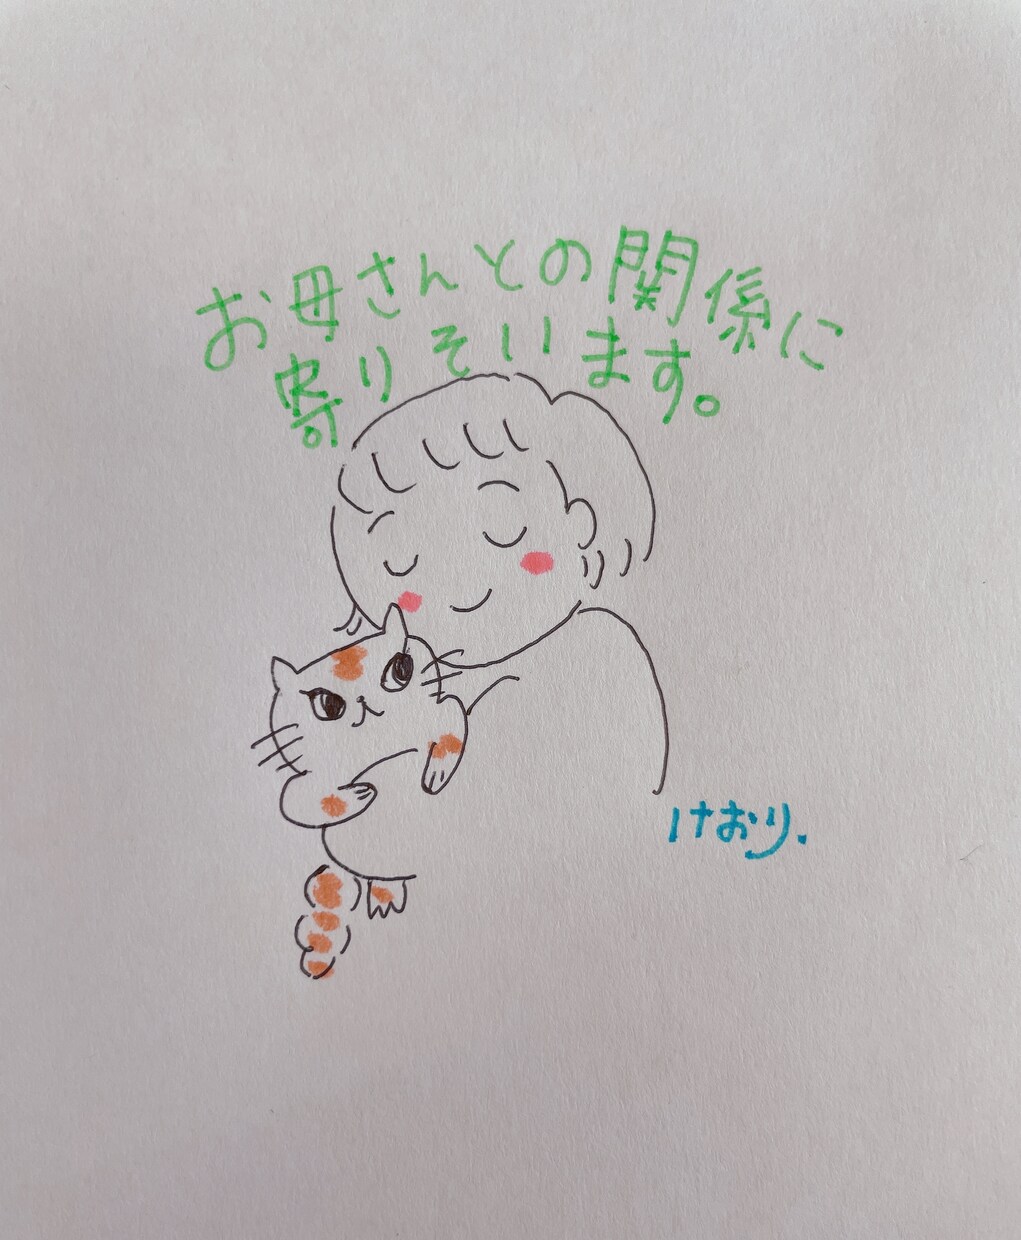 お母さんとの関係に
寄りそいます。
けおり.